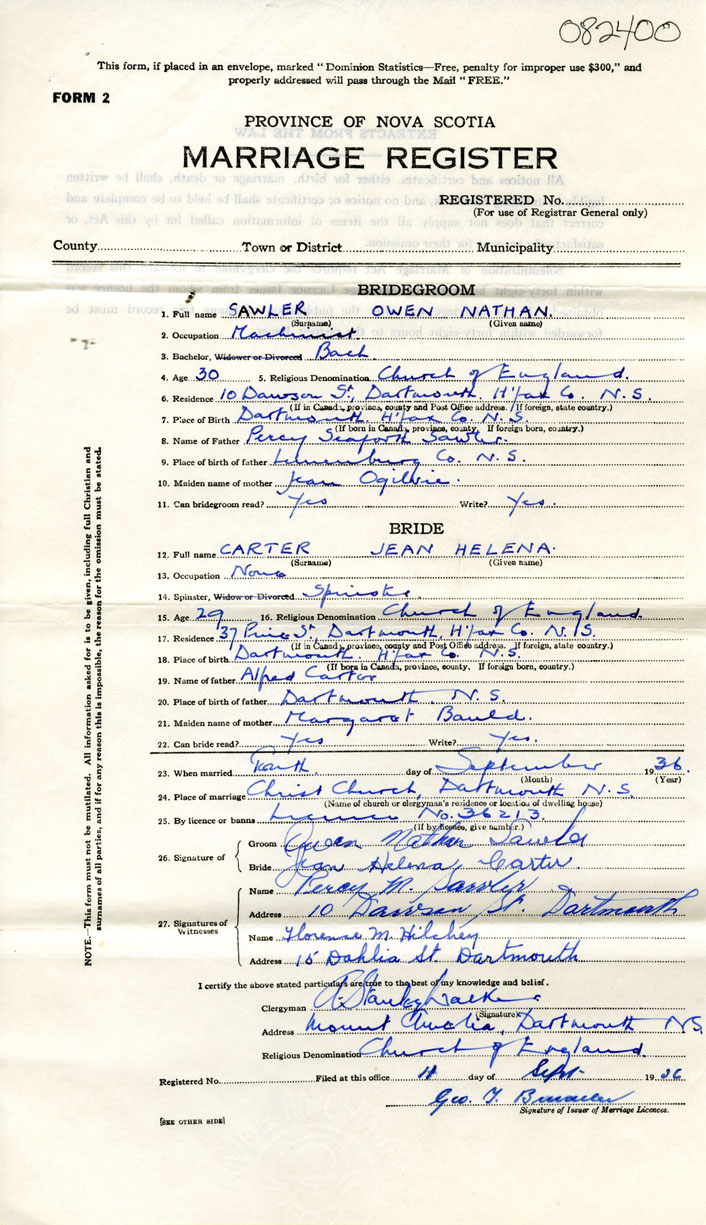 082400
This form, if placed in an envelope, marked "Dominion Statistics—Free, penalty for improper use $300," and
properly addressed will pass through the Mail "FREE."
FORM 2
PROVINCE OF NOVA SCOTIA
MARRIAGE REGISTER
REGISTERED No.
(For use of Registrar General only)
County Town or District Municipality
BRIDEGROOM
1. Full name SAWLER OWEN NATHAN.
(Surname) (Given name)
2. Occupation Machinist.
3. Bachelor, Widower or Divorced Bach
4. Age 30 5. Religious Denomination Church of England.
6. Residence 10 Dawson St, Dartmouth H'fax Co. N.S.
(If in Canada, province, county and Post Office address. If foreign, state country.)
7. Place of Birth Dartmouth, H'fax Co. N.S.
(If born in Canada, province, county. If foreign born, country.)
8. Name of Father Percy Seaforth Sawler.
9. Place of birth of father Lunenburg Co. N.S.
10. Maiden name of mother Jean Ogilvie.
11. Can bridegroom read? Yes Write? Yes.
BRIDE
12. Full name CARTER JEAN HELENA.
(Surname) (Given name)
13. Occupation None
14. Spinster, Widow or Divorced Spinster
15. Age 29 16. Religious Denomination Church of England.
17. Residence 37 St, Dartmouth, H'fax Co. N.S.
(If in Canada, province, county and Post Office address. If foreign, state country.)
18. Place of birth Dartmouth, H'fax Co. N.S.
(If born in Canada, province, county. If foreign born, country.)
19. Name of father Alfred Carter
20. Place of birth of father Dartmouth, N.S.
21. Maiden name of mother Margaret Bauld.
22. Can bride read? Yes Write? Yes.
23. When married day of September 1936.
(Month) (Year)
24. Place of marriage Christ Church, Dartmouth N.S.
(Name of church or clergyman's residence or location of dwelling house)
25. By licence or banns Licence No. 36213.
(If by licence, give number.)
26. Signature of Groom Owen Nathan Sawler
Bride Jean Helena Carter.
27. Signatures of Witnesses
Name Percy M. Sawler
Address 10 Dawson St. Dartmouth
Name Florence M. Hilchey
Address 15 Dahlia St. Dartmouth
I certify the above stated particulars are true to the best of my knowledge and belief.
Clergyman Stanley Walker
(Signature)
Address Mount Amelia, Dartmouth NS.
Religious Denomination Church of England.
Registered No. Filed at this office 11 day of Sept. 1936
Geo. T.
Signature of Issuer of Marriage Licences.
[SEE OTHER SIDE]
NOTE.—This form must not be mutilated. All information asked for is to be given, including full Christian and
surnames of all parties, and if for any reason this is impossible, the reason for the omission must be stated.